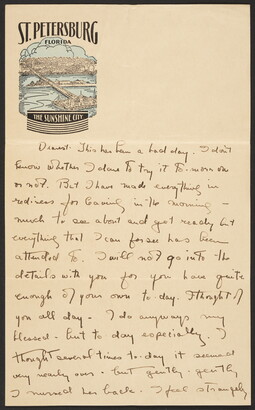 ST. PETERSBURG
FLORIDA
THE SUNSHINE CITY
Dearest: This has been a bad day. I don't
know whether I dare to try it to-morrow
or not. But I have made everything in
rediness for leaving in the morning —
much to see about and get ready but
everything that I can forsee has been
attended to. I will not go into the
details with you for you have quite
enough of your own to-day. I thought of
you all day. I do anyways my
blessed — but to day especially. I
thought several times to-day it seemed
very nearly over — but gently, gently
I nursed her back. I feel strangely